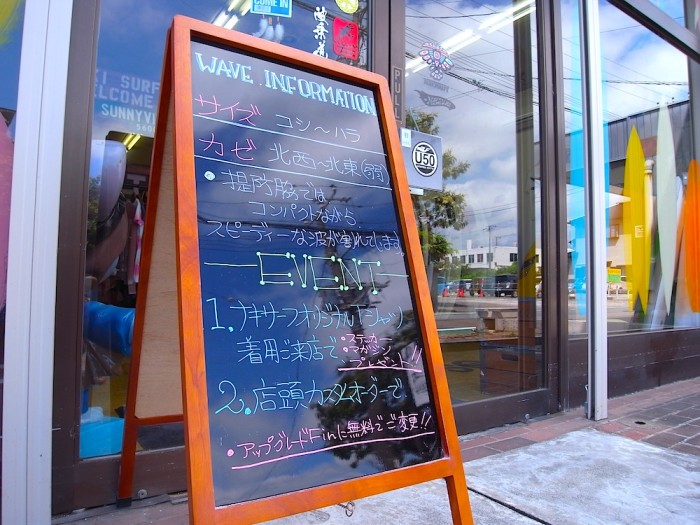 COME IN
PULL
KI SURF
WELCOME
SUNNYV
U50
WAVE. INFORMATION
サイズ コシ〜ハラ
カゼ 北西〜北東(弱)
• 堤防脇では
コンパクトながら
スピーディーな波が割れています!
—EVENT—
1. ナキサーフオリジナルTシャツ
着用ご来店で、
•ステッカー
•マガジン
プレゼント!!
2. 店頭カスタムオーダーで
•アップグレードFinに無料でご変更!!